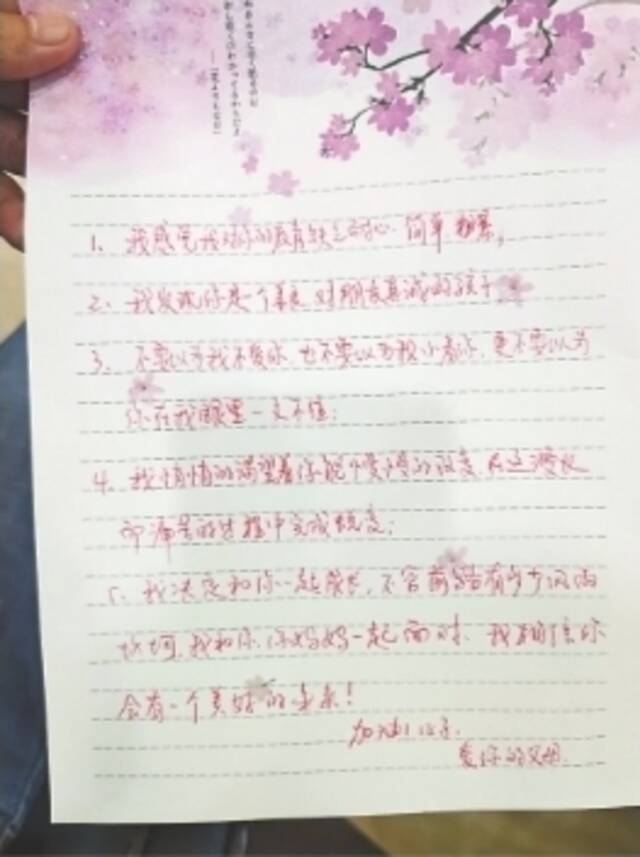 1、我感觉我对你的教育缺乏耐心、简单粗暴。
2、我发现你是一个善良、对朋友真诚的孩子。
3、不要以为我不爱你,也不要以为我小看你,更不要以为
你在我眼里一文不值;
4、我悄悄的渴望着你能慢慢的改变,在这漫长
而
的过程中完成蜕变;
5、我决定和你一起成长,不管前路有多少风雨
坎坷,我和你、你妈妈一起面对,我相信你
会有一个美好的未来!
加油!
爱你的父母